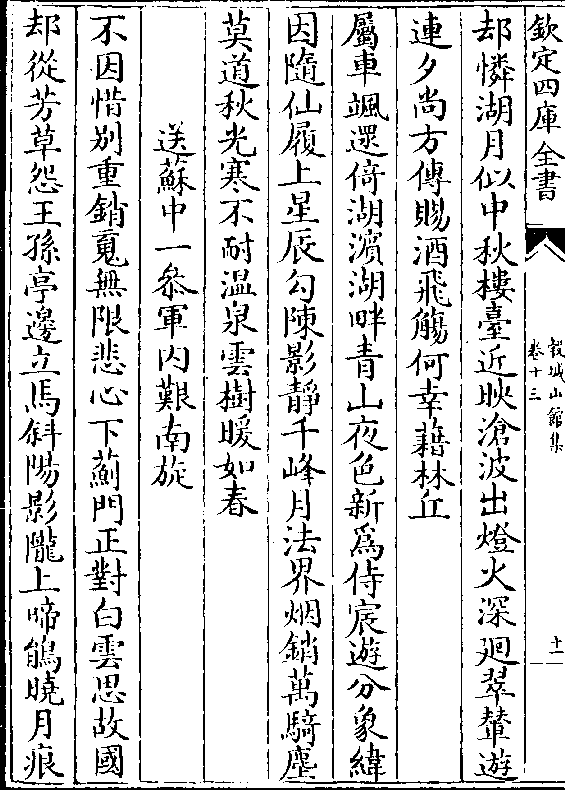 欽定四庫全書
榖城山館集
卷十三
十一
却憐湖月似中秋樓臺近映滄波出燈火深廻翠輦遊
連夕尚方傳賜酒飛觴何幸藉林丘
屬車颯還倚湖濵湖畔青山夜色新爲侍宸遊分象緯
因隨仙履上星辰勾陳影靜千峰月法界烟銷萬騎塵
莫道秋光寒不耐温泉雲樹暖如春
送蘇中一叅軍内艱南旋
不因惜别重銷䰟無限悲心下薊門正對白雲思故國
却從芳草怨王孫亭邊立馬斜陽影隴上啼鵑曉月痕